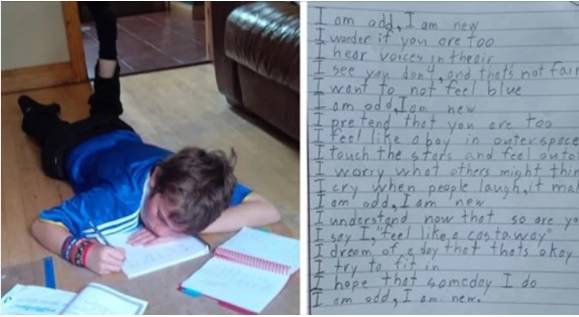 I am odd, I am new
I wonder if you are too
I hear voices in the air
I see you don't, and thats not fair
I want to not feel blue
I am odd, I am new
I pretend that you are too
I feel like a boy in outerspace
I touch the stars and feel
I worry what others might
I cry when people laugh, it
I am odd, I am new
I understand now that so are
I say I, "feel like a castaway"
I dream of a day that thats okay
I try to fit in
I hope that someday I do
I am odd, I am new.